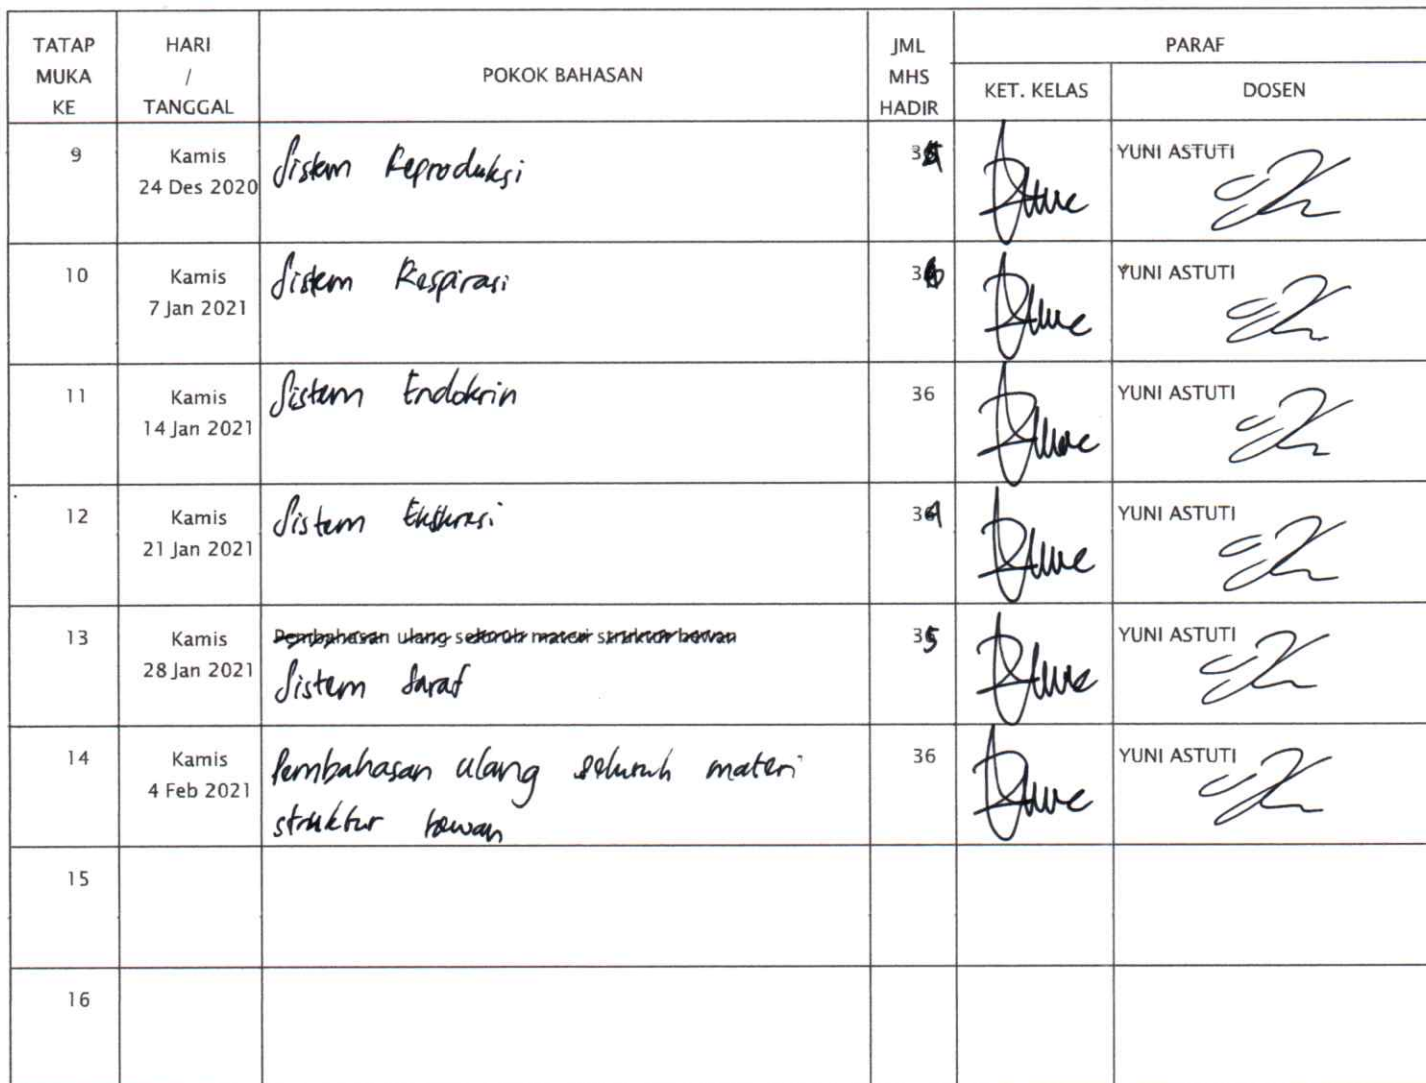 TATAP MUKA KE
HARI / TANGGAL
POKOK BAHASAN
JML MHS HADIR
PARAF
KET. KELAS
DOSEN
9
Kamis
24 Des 2020
Sistem Reproduksi
YUNI ASTUTI
10
Kamis
7 Jan 2021
Sistem Respirasi
36
YUNI ASTUTI
11
Kamis
14 Jan 2021
Sistem Endokrin
36
YUNI ASTUTI
12
Kamis
21 Jan 2021
Sistem Ekskresi
YUNI ASTUTI
13
Kamis
28 Jan 2021
Pembahasan ulang seluruh materi struktur hewan
Sistem Saraf
35
YUNI ASTUTI
14
Kamis
4 Feb 2021
Pembahasan ulang seluruh materi
struktur hewan
36
YUNI ASTUTI
15
16